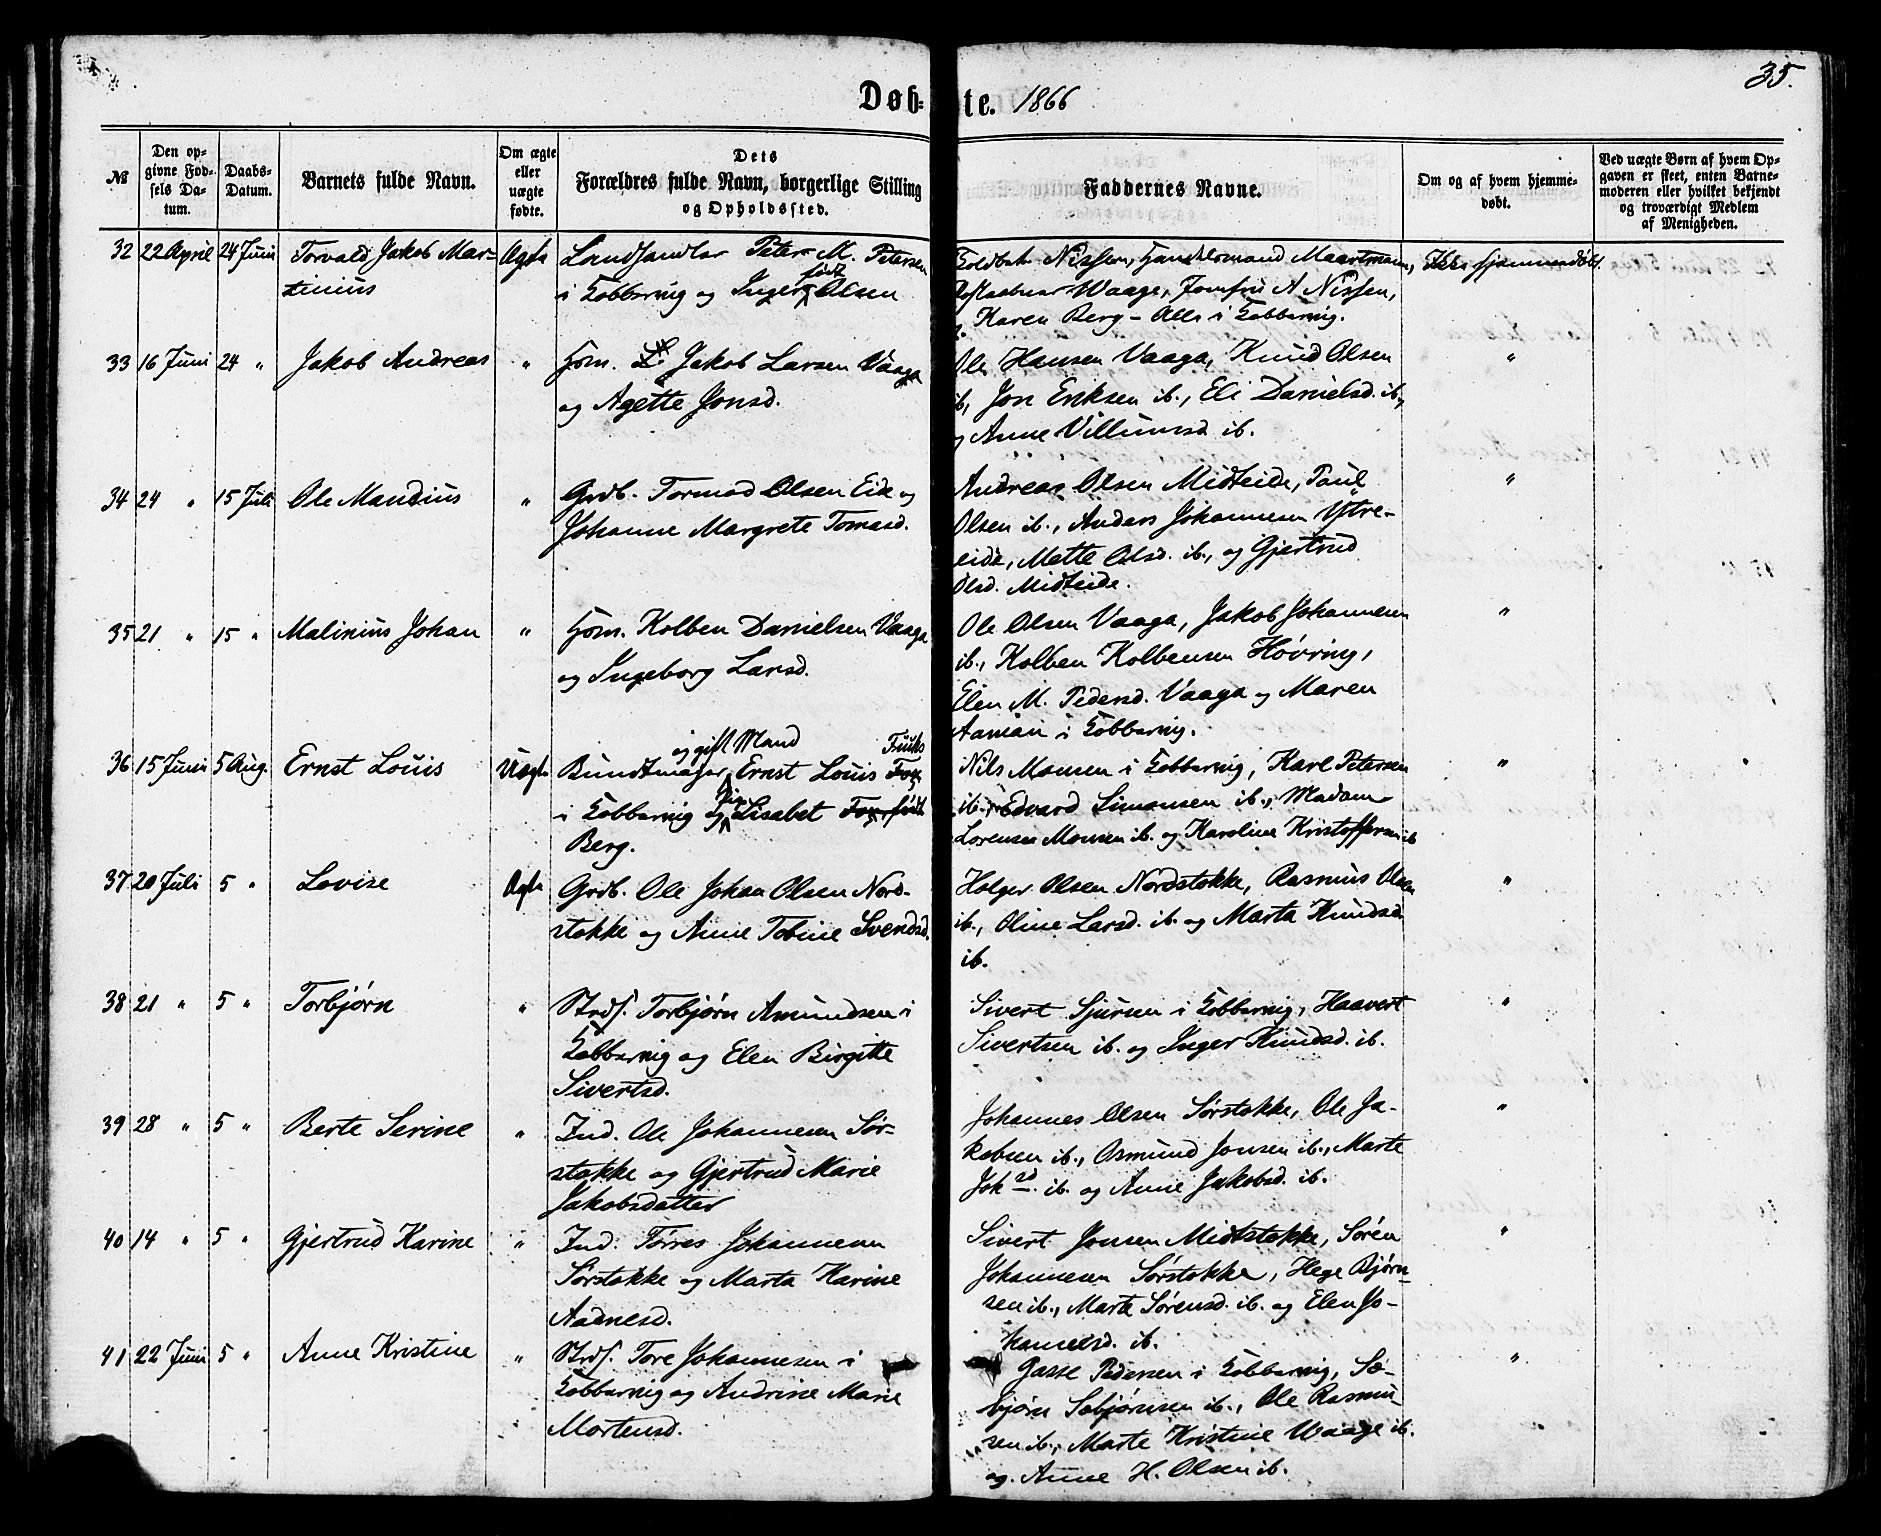 35.
Døb-te. 1866
№
Den op-
givne Fød-
sels Da-
tum.
Daabs-
Datum.
Barnets fulde Navn.
Om ægte
eller
uægte
fødte.
Dets
Forældres fulde Navn, borgerlige Stilling
og Opholdssted.
Faddernes Navne.
Om og af hvem hjemme-
døbt.
Ved uægte Børn af hvem Op-
gaven er skeet, enten Barne-
moderen eller hvilket bekjendt
og troværdigt Medlem
af Menigheden.
32 22 April 24 Juni Torvald Jakob Mar-
tinius
Ægte
Landhandler Peter M. Petersen
i Kobbervig og Inger født Olsen
Nissen, Maartmann,
Waage, Jomfru A Nissen,
Karen Berg - Alle i Kobbervig.
Ikke hjemmedøbt.
33 16 Juni 24 " Jakob Andreas "
Hsm. Jakob Larsen Vaaga
og Agette Jonsd.
Ole Hansen Vaaga, Knud Olsen
ib, Jon Eriksen ib., Eli Danielsd. ib,
og Anne Villumsd ib.
"
34 24 " 15 Juli Ole Mandius "
Grdb. Tormod Olsen Eide og
Johanne Margrete Tomasd.
Andreas Olsen Midteide, Paul
Olsen ib., Anders Johannesen Ytre-
eide, Mette Olsd. ib., og Gjertrud
Olsd. Midteide.
"
35 21 " 15 " Malinius Johan "
Hsm. Kolben Danielsen Vaaga
og Ingeborg Larsd.
Ole Olsen Vaaga, Jakob Johannesen
ib., Kolben Kolbensen Høvring,
Elen M. Pedersd. Vaaga og Maren
i Kobbervig.
"
36 15 Juni 5 Aug. Ernst Louis Uægte
Bundtmager og gift Mand Ernst Louis Fuuks
i Kobbervig og Lisabet
Berg.
Nils Monsen i Kobbervig, Karl Petersen
ib., Edvard Simonsen ib., Madam
Lorense Monsen ib. og Karoline Kristoffersen ib
"
37 20 Juli 5 " Lovise Ægte
Grdb. Ole Johan Olsen Nord-
stokke og Anne Tobine Svendsd.
Holger Olsen Nordstokke, Rasmus Olsen
ib., Oline Larsd. ib. og Marta Knudsd.
ib.
"
38 21 " 5 " Torbjørn "
Strds. Torbjørn Amundsen i
Kobbervig og Elen Birgitte
Sivertsd.
Sivert Sjursen i Kobbervig, Haavert
Sivertsen ib. og Inger Knudsd. ib.
"
39 28 " 5 " Berte Serine "
Ind. Ole Johannesen Sør-
stokke og Gjertrud Marie
Jakobsdatter
Johannes Olsen Sørstokke, Ole Ja-
kobsen ib., Osmund Jonsen ib., Marte
Joh sd. ib. og Anne Jakobsd. ib.
"
40 14 " 5 " Gjertrud Karine "
Ind. Torres Johannesen
Sørstokke og Marta Karine
Aadnesd.
Sivert Jonsen Midtstokke, Søren
Johannesen Sørstokke, Hege Bjørn-
sen ib., Marte Sørensd. ib. og Elen Jo-
hannesd. ib.
"
41 22 Juni 5 " Anne Kristine "
Strds. Tore Johannesen i
Kobbervig og Andrine Marie
Mortensd.
Gasse Pedersen i Kobbervig, Sæ-
bjørn Sæbjørnsen ib., Ole Rasmu-
sen ib., Marte Kristine Waage ib.
og. Anne H. Olsen ib.
"